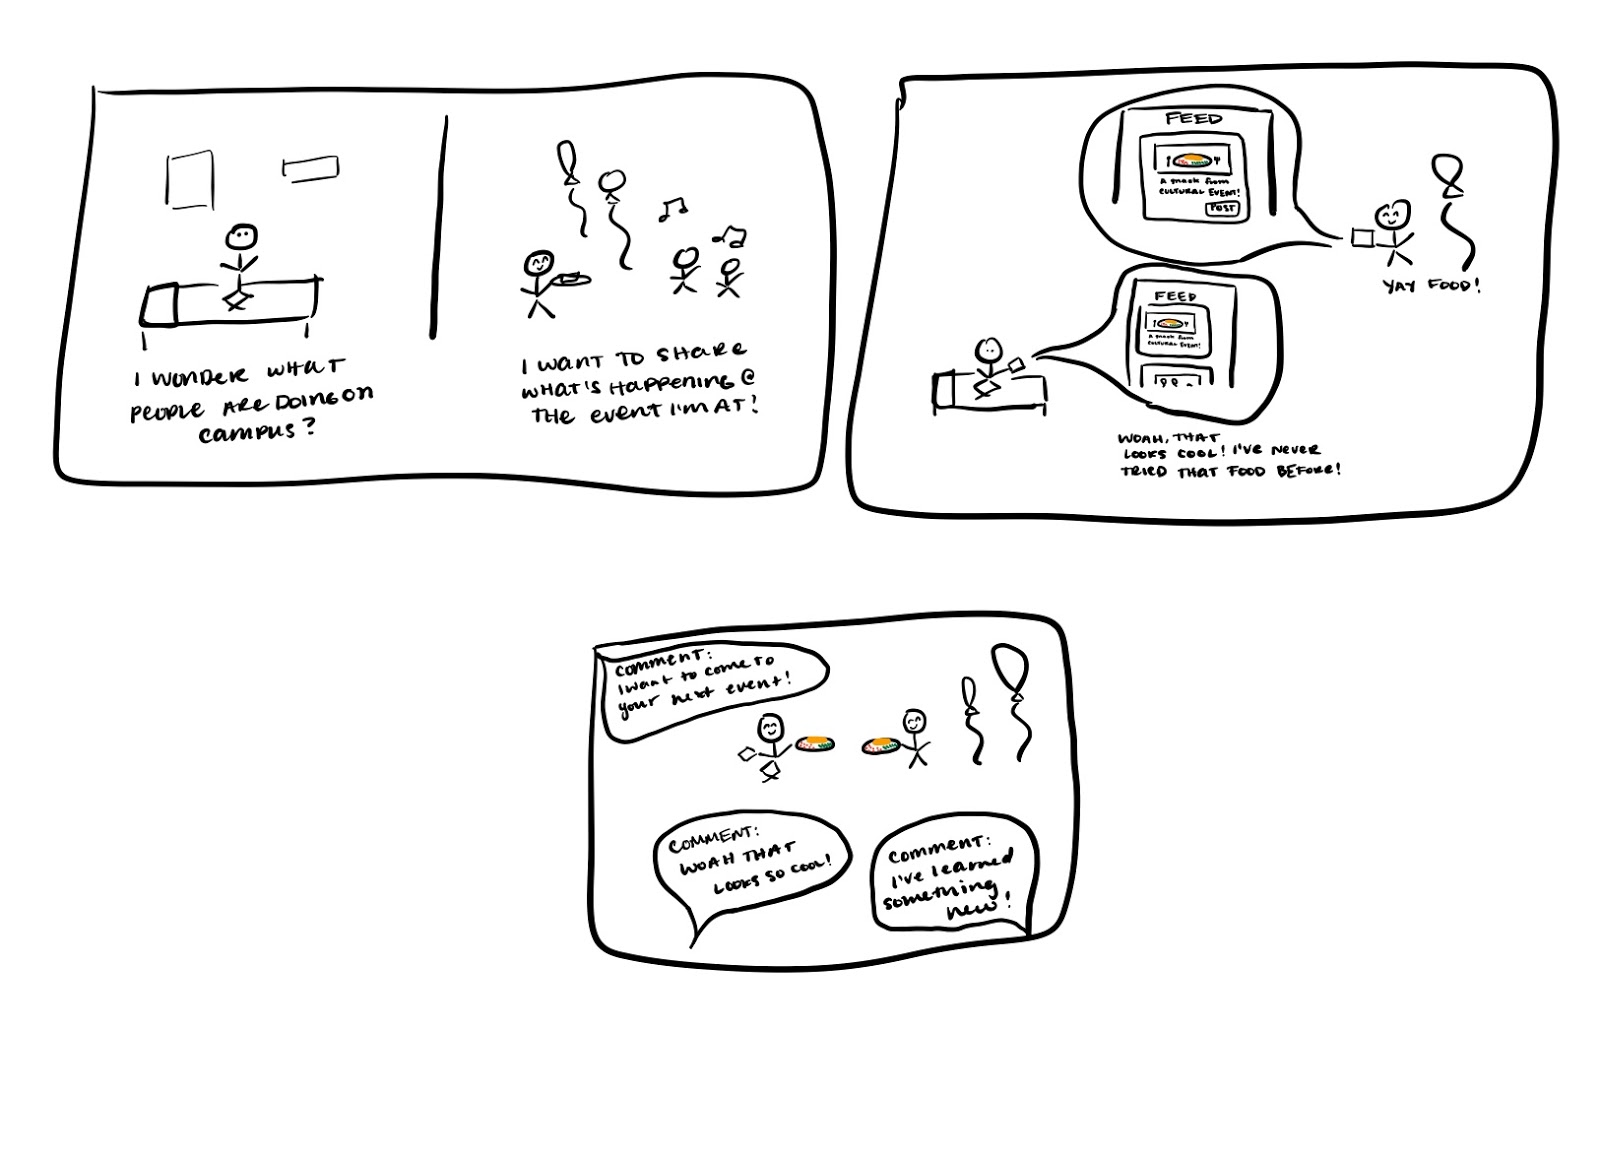 I WONDER WHAT
PEOPLE ARE DOING ON
CAMPUS?
I WANT TO SHARE
WHAT'S HAPPENING @
THE EVENT I'M AT!
FEED
A snack from
CULTURAL EVENT!
POST
YAY FOOD!
FEED
A snack from
CULTURAL EVENT!
WOAH, THAT
LOOKS COOL! I'VE NEVER
TRIED THAT FOOD BEFORE!
comment:
I want to come to
your next event!
COMMENT:
WOAH THAT
LOOKS SO COOL!
comment:
I've learned
something
new!